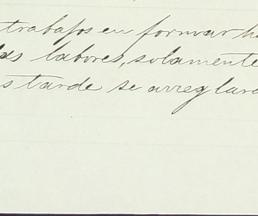 trabajos en formar ha
las labores, solamente
s tarde se arreglara